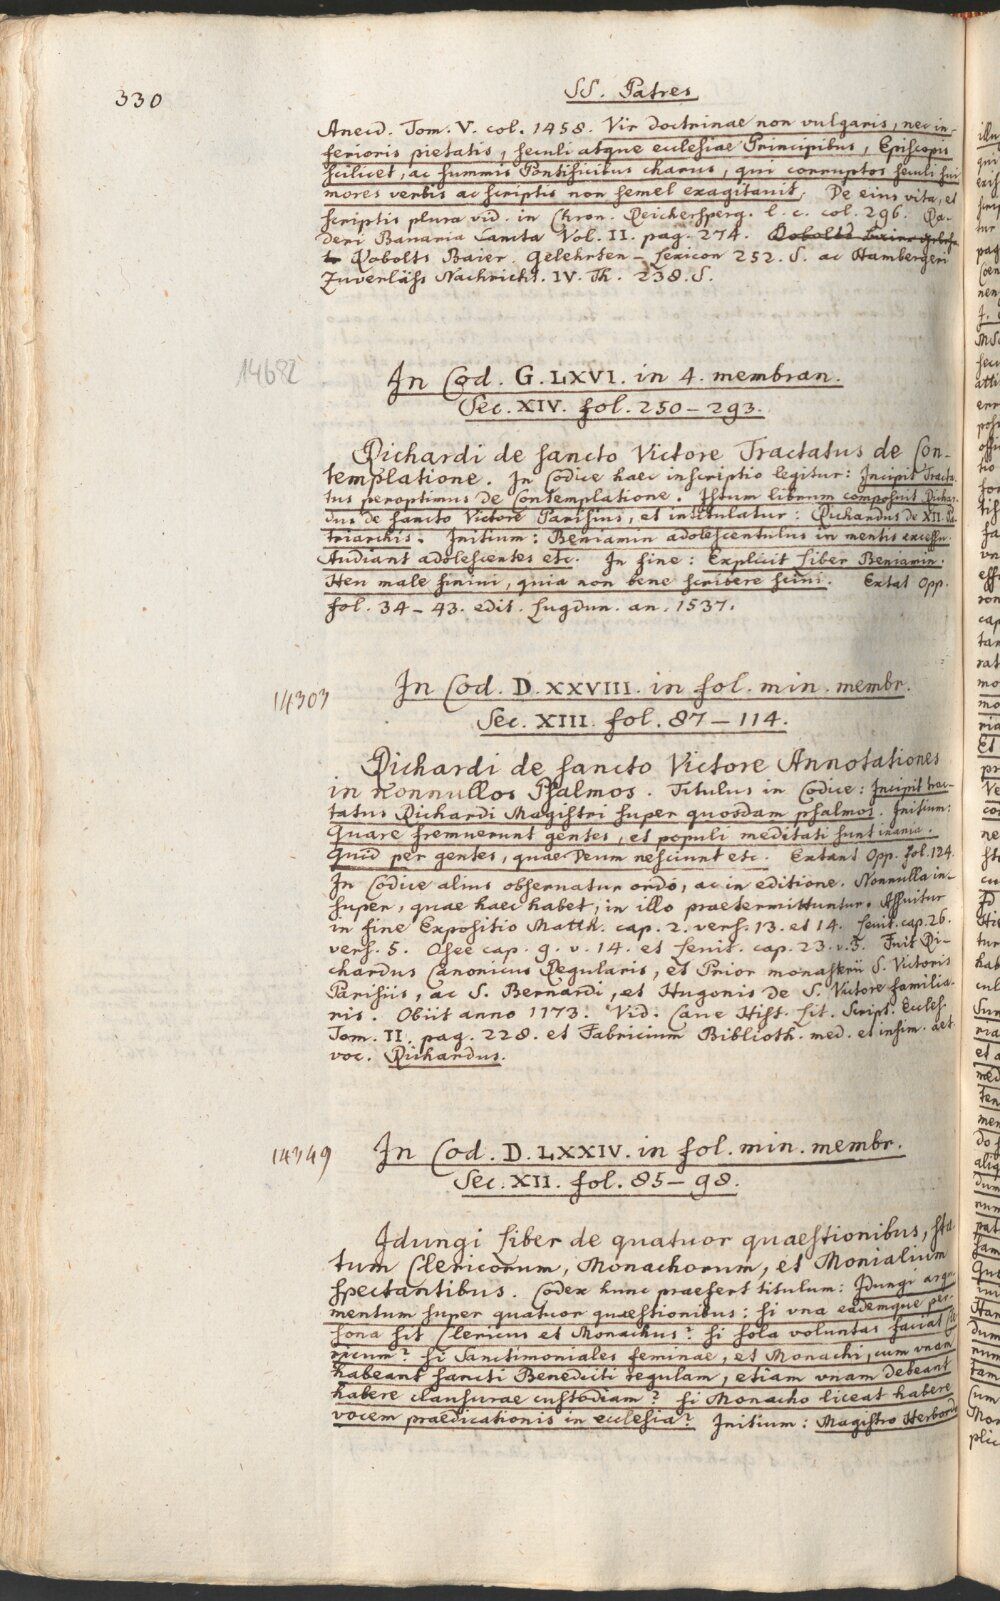 330
SS. Patres
Anecd. Tom. V. col. 1458. Vir doctrinae non vulgaris, nec in-
ferioris pietatis, seculi atque ecclesiae Principibus, Episcopis
scilicet, ac summis Pontificibus charus, qui corruptos seculi sui
mores verbis ac scriptis non semel exagitavit. De eius vita, et
scriptis plura vid. in Chron. Reichersperg. l. c. col. 296. Ra-
deri Bavaria Sancta Vol. II. pag. 274. Kobolts Baier gelehr
Kobolts Baier. Gelehrten-Lexicon 252. S. ac Hambergeri
Zuverläss Nachricht. IV. Th. 238. S.
14682
In Cod. G. LXVI. in 4. membran.
Sec. XIV. fol. 250–293.
Richardi de sancto Victore Tractatus de Con-
templatione. In Codice haec inscriptio legitur: Incipit Tracta-
tus peroptimus de Contemplatione. Istum librum composuit Richar-
dus de sancto Victore Parisius, et intitulatur: Richardus de XII. Pa-
triarchis. Initium: Beniamin adolescentulus in mentis excessu.
Audiant adolescentes etc. In fine: Explicit Liber Beniamin.
Heu male finivi, quia non bene scribere scivi. Extat Opp.
fol. 34–43. edit. Lugdun. an. 1537.
14303
In Cod. D. XXVIII. in fol. min. membr.
Sec. XIII. fol. 87–114.
Richardi de sancto Victore Annotationes
in nonnullos Psalmos. Titulus in Codice: Incipit trac-
tatus Richardi Magistri super quosdam psalmos. Initium:
Quare fremuerunt gentes, et populi meditati sunt inania.
Quid per gentes, quae Deum nesciunt etc. Extant Opp. fol. 124.
In Codice alius observatur ordo, ac in editione. Nonnulla in-
super, quae haec habet, in illo praetermittuntur. Assuitur
in fine Expositio Matth. cap. 2. vers. 13. et 14. Levit. cap. 26.
vers. 5. Osee cap. 9. v. 14. et Levit. cap. 23. v. 5. Fuit Ri-
chardus Canonicus Regularis, et Prior monasterii S. Victoris
Parisiis, ac S. Bernardi, et Hugonis de S. Victore familia-
ris. Obiit anno 1173. Vid. Cave Hist. Lit. Script. Eccles.
Tom. II. pag. 228. et Fabricium Biblioth. med. et infim. aet.
voc. Richardus.
14349
In Cod. D. LXXIV. in fol. min. membr.
Sec. XII. fol. 85–98.
Idungi Liber de quatuor quaestionibus, sta-
tum Clericorum, Monachorum, et Monialium
spectantibus. Codex hunc praefert titulum: Idungi argu-
mentum super quatuor quaestionibus: si una eademque per-
sona sit Clericus et Monachus? si sola voluntas faciat Cle-
ricum? si Sanctimoniales feminae, et Monachi, cum unam
habeant sancti Benedicti regulam, etiam unam debeant
habere clausurae custodiam? si Monacho liceat habere
vocem praedicationis in ecclesia? Initium: Magistro Herbordo